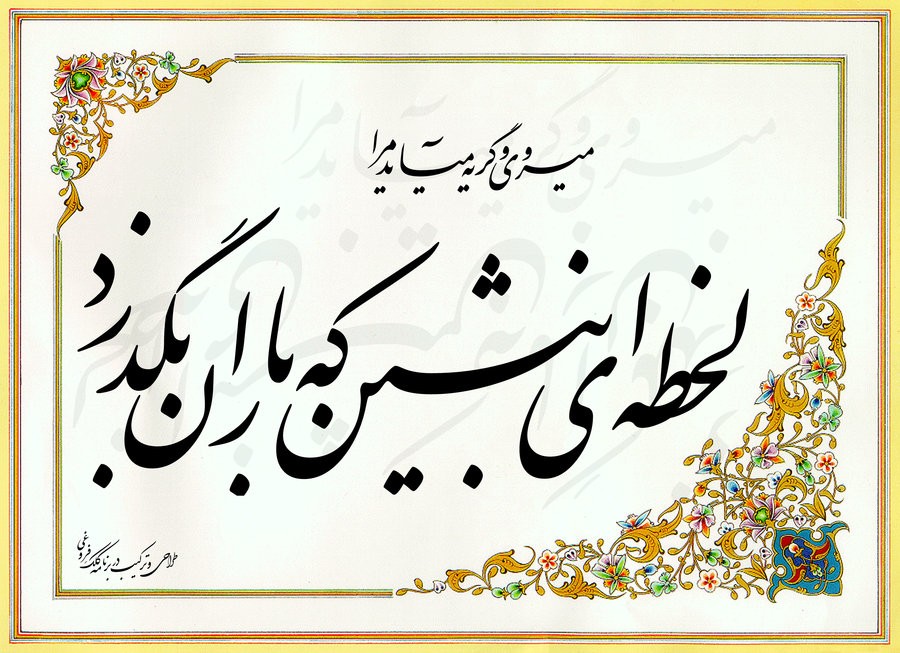 میروی و گریه میآید مرا
لحظه‌ای بنشین که باران بگذرد
طراحی و ترکیب در برنامه کلک فروغی